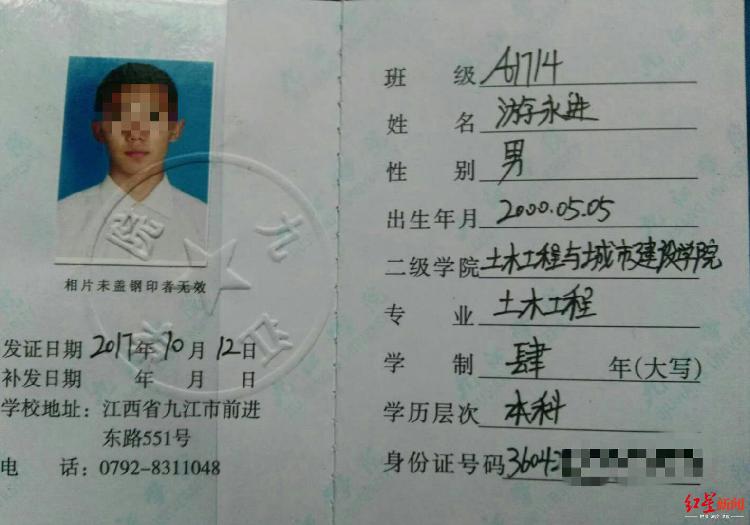 相片未盖钢印者无效
发证日期 2017年10月12日
补发日期 年 月 日
学校地址：江西省九江市前进
东路551号
电 话：0792-8311048
班 级 A1714
姓 名 游永进
性 别 男
出生年月 2000.05.05
二级学院 土木工程与城市建设学院
专 业 土木工程
学 制 肆 年(大写)
学历层次 本科
身份证号码 36042
红星新闻